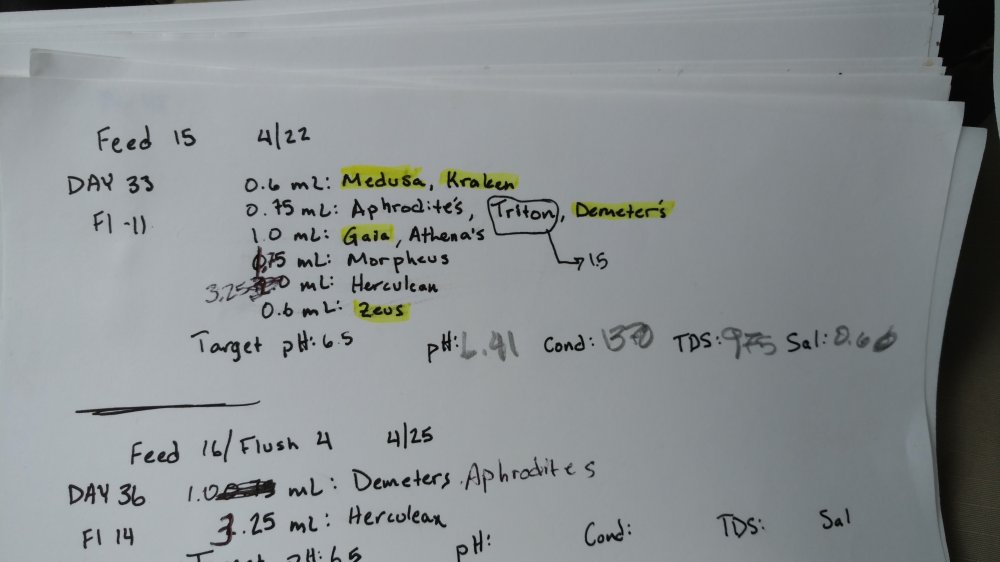 Feed 15 4/22
DAY 33 0.6 mL: Medusa, Kraken
Fl -11 0.75 mL: Aphrodite's, Triton, Demeter's
1.0 mL: Gaia, Athena's → 1.5
.75 mL: Morpheus
3.25 mL: Herculean
0.6 mL: Zeus
Target pH: 6.5 pH: 6.41 Cond: TDS: 975 Sal:
Feed 16/Flush 4 4/25
DAY 36 1.0 mL: Demeters Aphrodites
Fl 14 3.25 mL: Herculean
Target pH: 6.5 pH: Cond: TDS: Sal